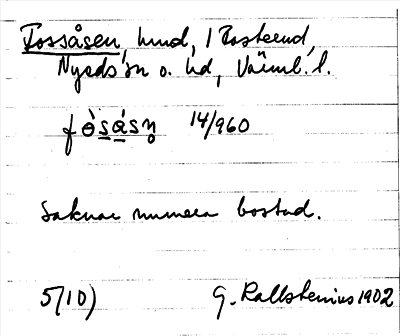 Fossåsen, hmd, 1 Bosterud,
Nyeds sn o. hd, Värml. l.
fòsåsn̥ 14/960
Saknar numera bostad.
5/10) G. Kallstenius 1902